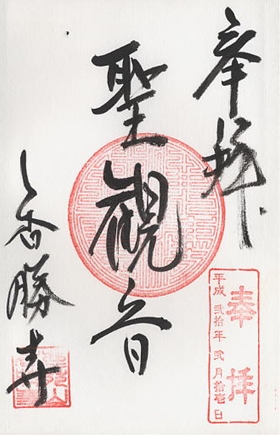 奉拝
聖観音
勝寿
奉拝
平成弐拾年弐月拾壱日